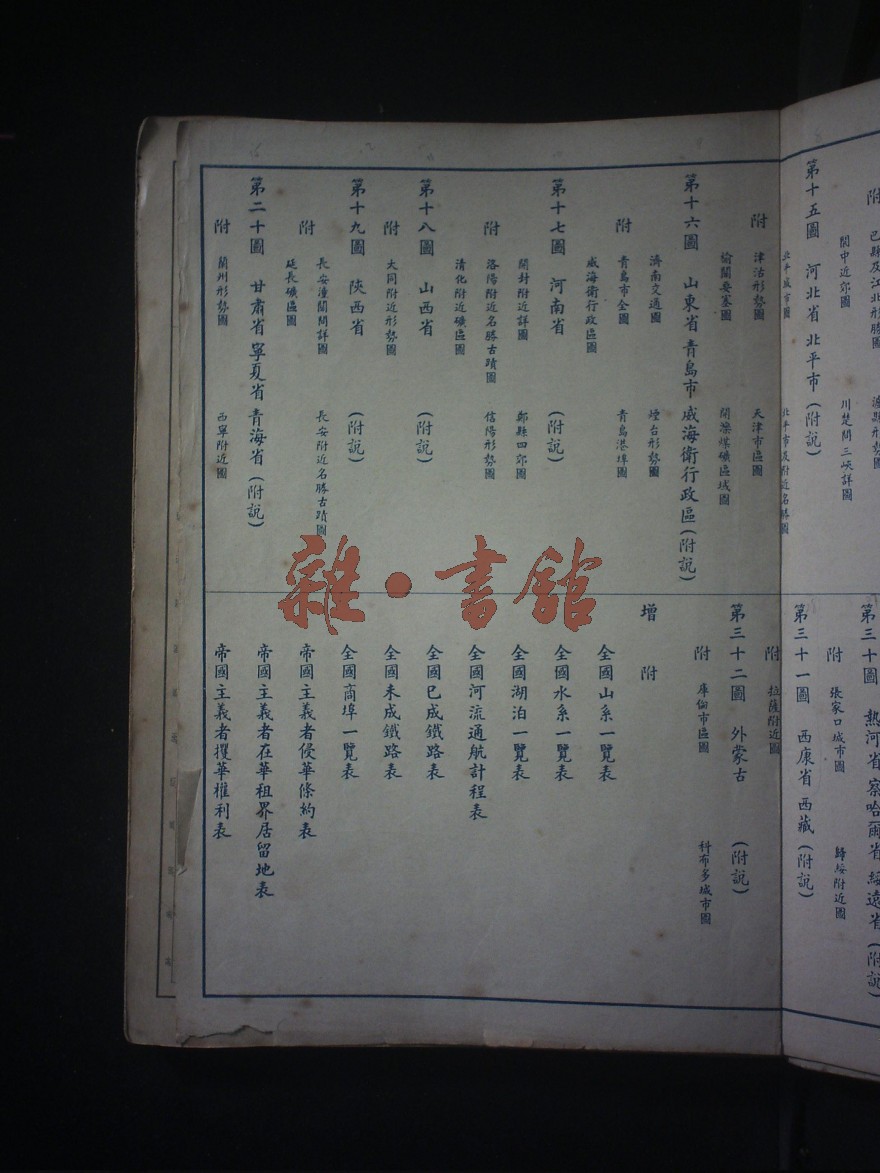 附 巴縣及江北形勢圖 瀘縣形勢圖
閬中近郊圖 川楚間三峽詳圖
第十五圖 河北省 北平市 (附說)
北平城市圖 北平市及附近名勝圖
附 津沽形勢圖 天津市區圖
榆關要塞圖 開灤煤礦區域圖
第十六圖 山東省 青島市 威海衛行政區 (附說)
濟南交通圖 煙台形勢圖
附 青島市全圖 青島港埠圖
威海衛行政區圖
第十七圖 河南省 (附說)
開封附近詳圖 鄭縣四郊圖
附 洛陽附近名勝古蹟圖 信陽形勢圖
清化附近礦區圖
第十八圖 山西省 (附說)
附 大同附近形勢圖
第十九圖 陝西省 (附說)
附 長安潼關間詳圖 長安附近名勝古蹟圖
延長礦區圖
第二十圖 甘肅省 寧夏省 青海省 (附說)
附 蘭州形勢圖 西寧附近圖
第三十圖 熱河省 察哈爾省 綏遠省 (附說)
附 張家口城市圖 歸綏附近圖
第三十一圖 西康省 西藏 (附說)
附 拉薩附近圖
第三十二圖 外蒙古 (附說)
附 庫倫市區圖 科布多城市圖
增附
全國山系一覽表
全國水系一覽表
全國湖泊一覽表
全國河流通航計程表
全國已成鐵路表
全國未成鐵路表
全國商埠一覽表
帝國主義者侵華條約表
帝國主義者在華租界居留地表
帝國主義者攫華權利表
雜·書館